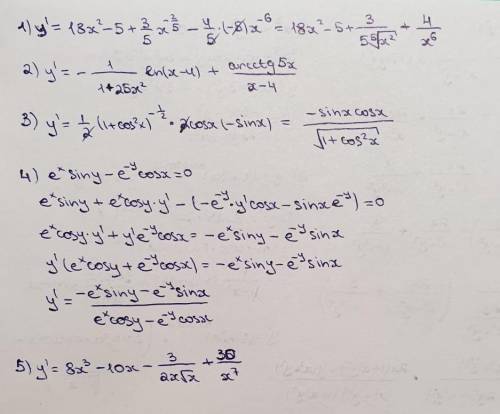 1) y' = 18x² - 5 + 3/5 x^(-3/5) - 4/5 · (-5)x^(-6) = 18x² - 5 + 3/(5 ⁵√x²) + 4/x⁶
2) y' = - 1/(1+25x²) ln(x-4) + arcctg5x/(x-4)
3) y' = 1/2 (1+cos²x)^(-1/2) · 2cosx(-sinx) = -sinxcosx/√(1+cos²x)
4) eˣsiny - e⁻ʸcosx = 0
eˣsiny + eˣcosy·y' - (-e⁻ʸ·y'cosx - sinxe⁻ʸ) = 0
eˣcosy·y' + y'e⁻ʸcosx = -eˣsiny - e⁻ʸsinx
y'(eˣcosy + e⁻ʸcosx) = -eˣsiny - e⁻ʸsinx
y' = (-eˣsiny - e⁻ʸsinx)/(eˣcosy - e⁻ʸcosx)
5) y' = 8x³ - 10x - 3/(2x√x) + 30/x⁷